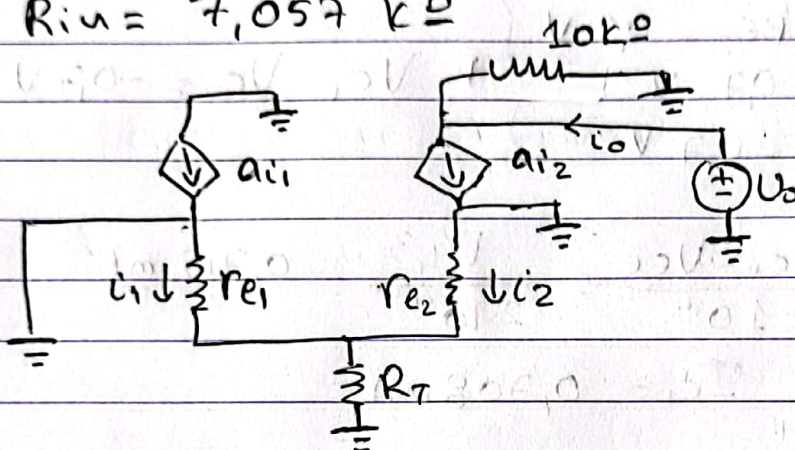 Rin = 7,057 kΩ
10kΩ
io
ai1
ai2
Uo
i1 re1
re2 i2
RT